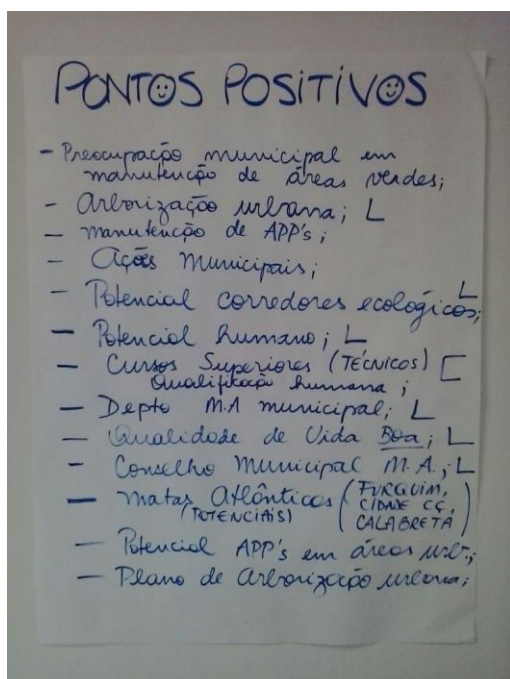 PONTOS POSITIVOS
- Preocupação municipal em
manutenção de áreas verdes;
- Arborização urbana;
- manutenção de APP's;
- Ações Municipais;
- Potencial corredores ecológicos;
- Potencial humano;
- Cursos Superiores (TÉCNICOS)
Qualificação humana;
- Depto M.A municipal;
- Qualidade de Vida Boa;
- Conselho Municipal M.A.;
- Matas Atlânticas (FURQUIM,
(POTENCIAIS) CIDADE CÇ,
CALABRETA)
- Potencial APP's em áreas urb.;
- Plano de Arborização urbana;